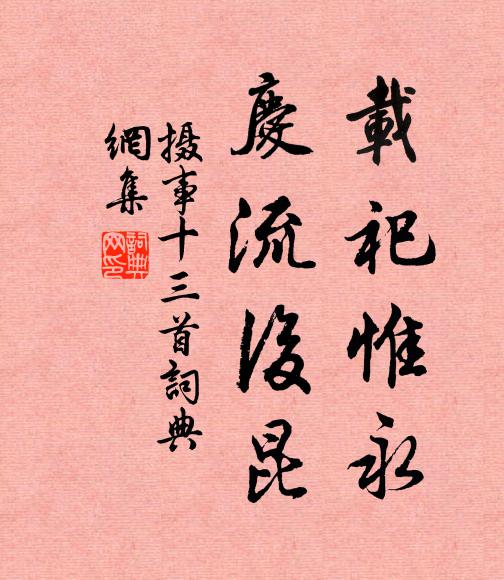 載祀惟永
慶流後昆
摄事十三首詞典
網集
詞典
网印